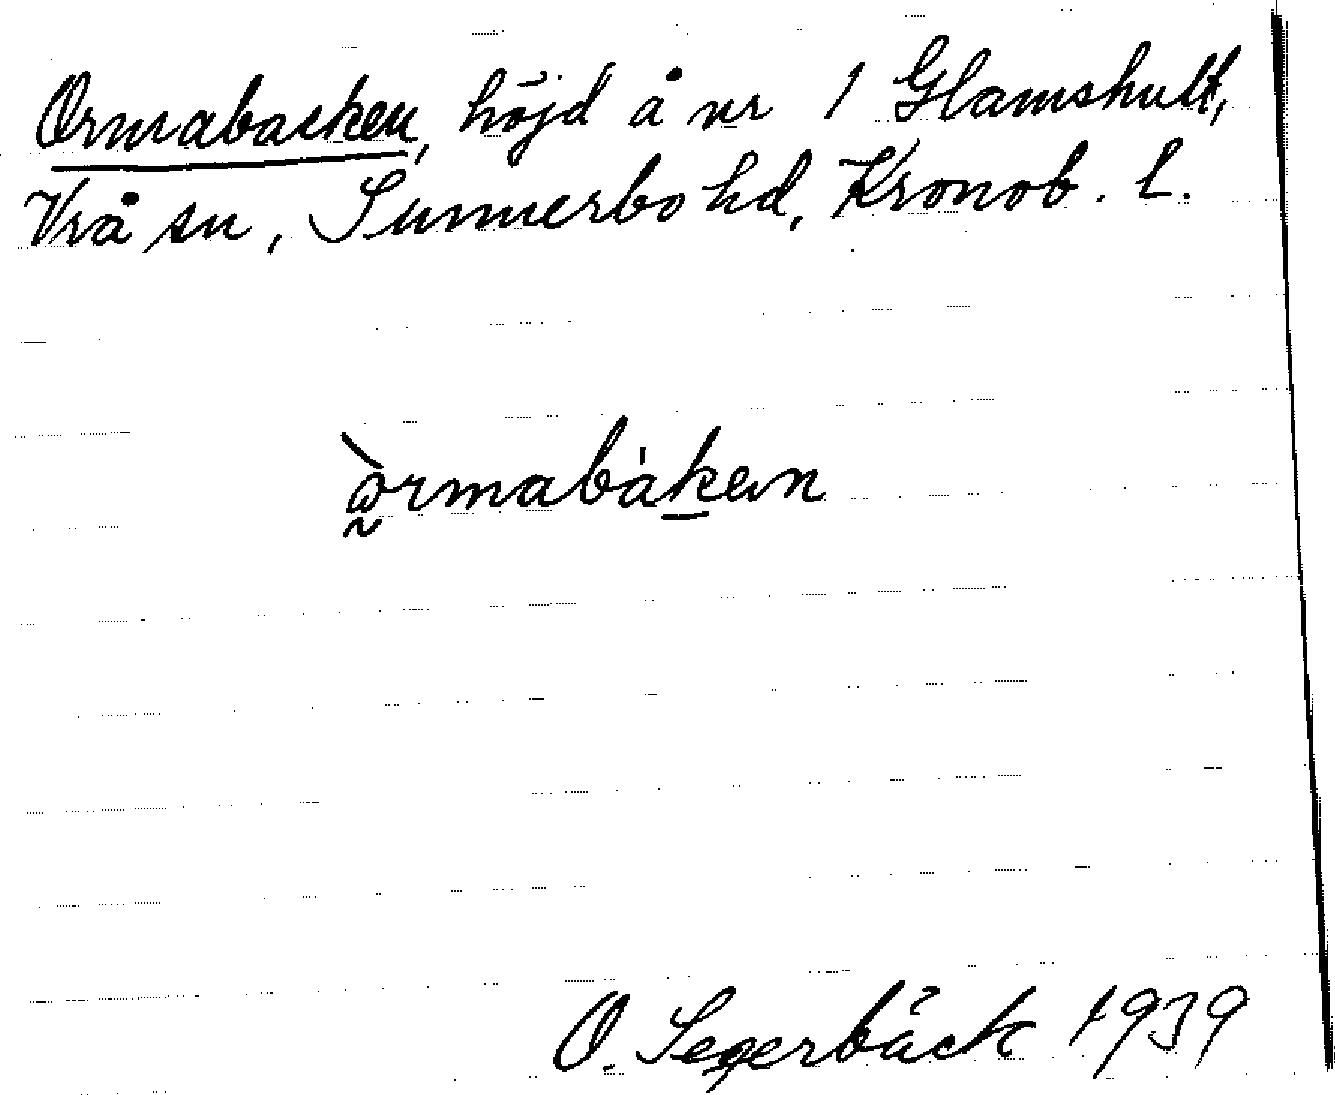 Ormabacken, höjd å nr 1 Glamshult,
Vrå sn, Sunnerbo hd, Kronob. l.
òrmabàken
O. Segerbäck 1939